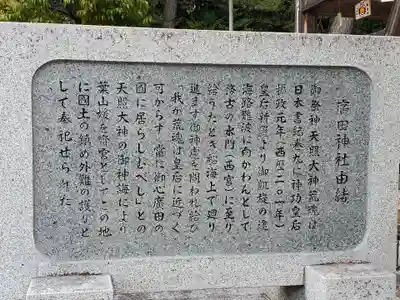 廣田神社由緒
御祭神天照大神荒魂は
日本書紀巻九に神功皇后
摂政元年（西暦二〇一年）
皇后新羅より御凱旋の途
海路難波に向かわんとして
務古の水門（西宮）に至り
給うたとき船海上で廻り
進まず御神慮を問われ給ひ
「我が荒魂は皇后に近づく
可からず 當に御心廣田の
國に居らしむべし」との
天照大神の御神誨により
葉山媛を斎宮としてこの地
に國土の鎮め外難の護りと
して奉祀せられた